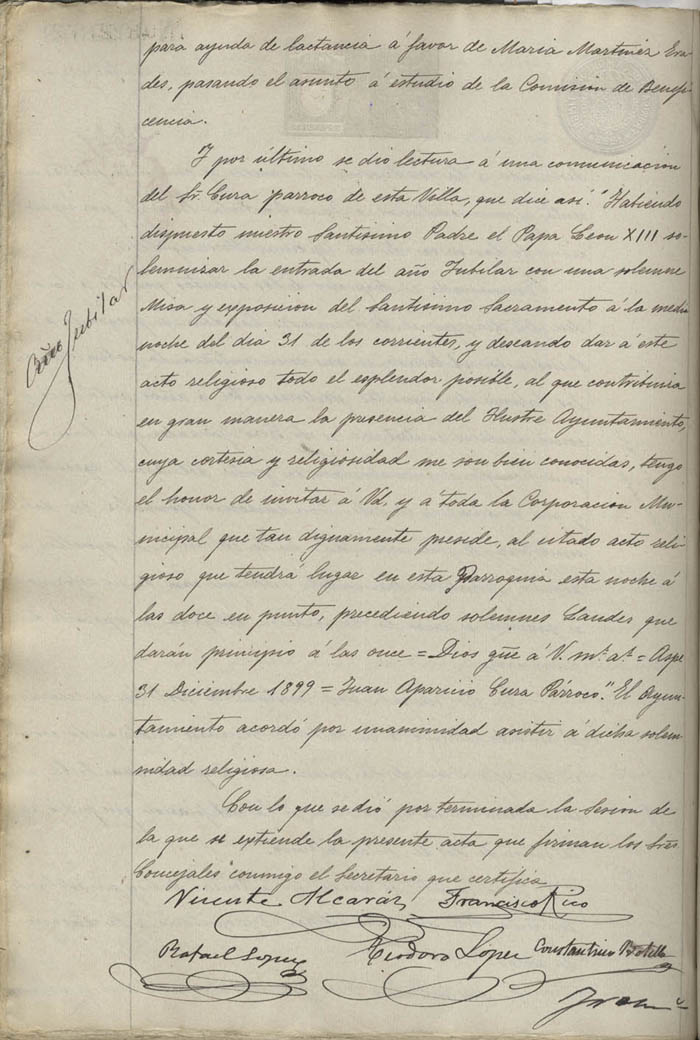 para ayuda de lactancia á favor de Maria Martinez Era-
des, pasando el asunto á estudio de la Comision de Benefi-
cencia.
Y por último se dio lectura á una comunicacion
del Sr. Cura párroco de esta Villa, que dice así: "Habiendo
dispuesto nuestro Santisimo Padre el Papa Leon XIII so-
lemnizar la entrada del año Jubilar con una solemne
Misa y exposicion del Santisimo Sacramento á la media
noche del dia 31 de los corrientes, y deseando dar á este
acto religioso todo el esplendor posible, al que contribuiria
en gran manera la presencia del Ilustre Ayuntamiento,
cuya cortesia y religiosidad me son bien conocidas, tengo
el honor de invitar á Vd. y a toda la Corporacion Mu-
nicipal que tan dignamente preside, al citado acto reli-
gioso que tendrá lugar en esta Parroquia esta noche á
las doce en punto, precediendo solemnes Laudes que
darán principio á las once = Dios gūe á V. ms. as. = Aspe
31 Diciembre 1899 = Juan Aparicio Cura Párroco." El Ayun-
tamiento acordó por unanimidad asistir á dicha solem-
nidad religiosa.
Con lo que se dió por terminada la Sesion de
la que se extiende la presente acta que firman los Sres.
Concejales conmigo el Secretario que certifica
Año Jubilar
Vicente Alcaráz Francisco Rico
Rafael Lopez Teodoro López Constantino Botella